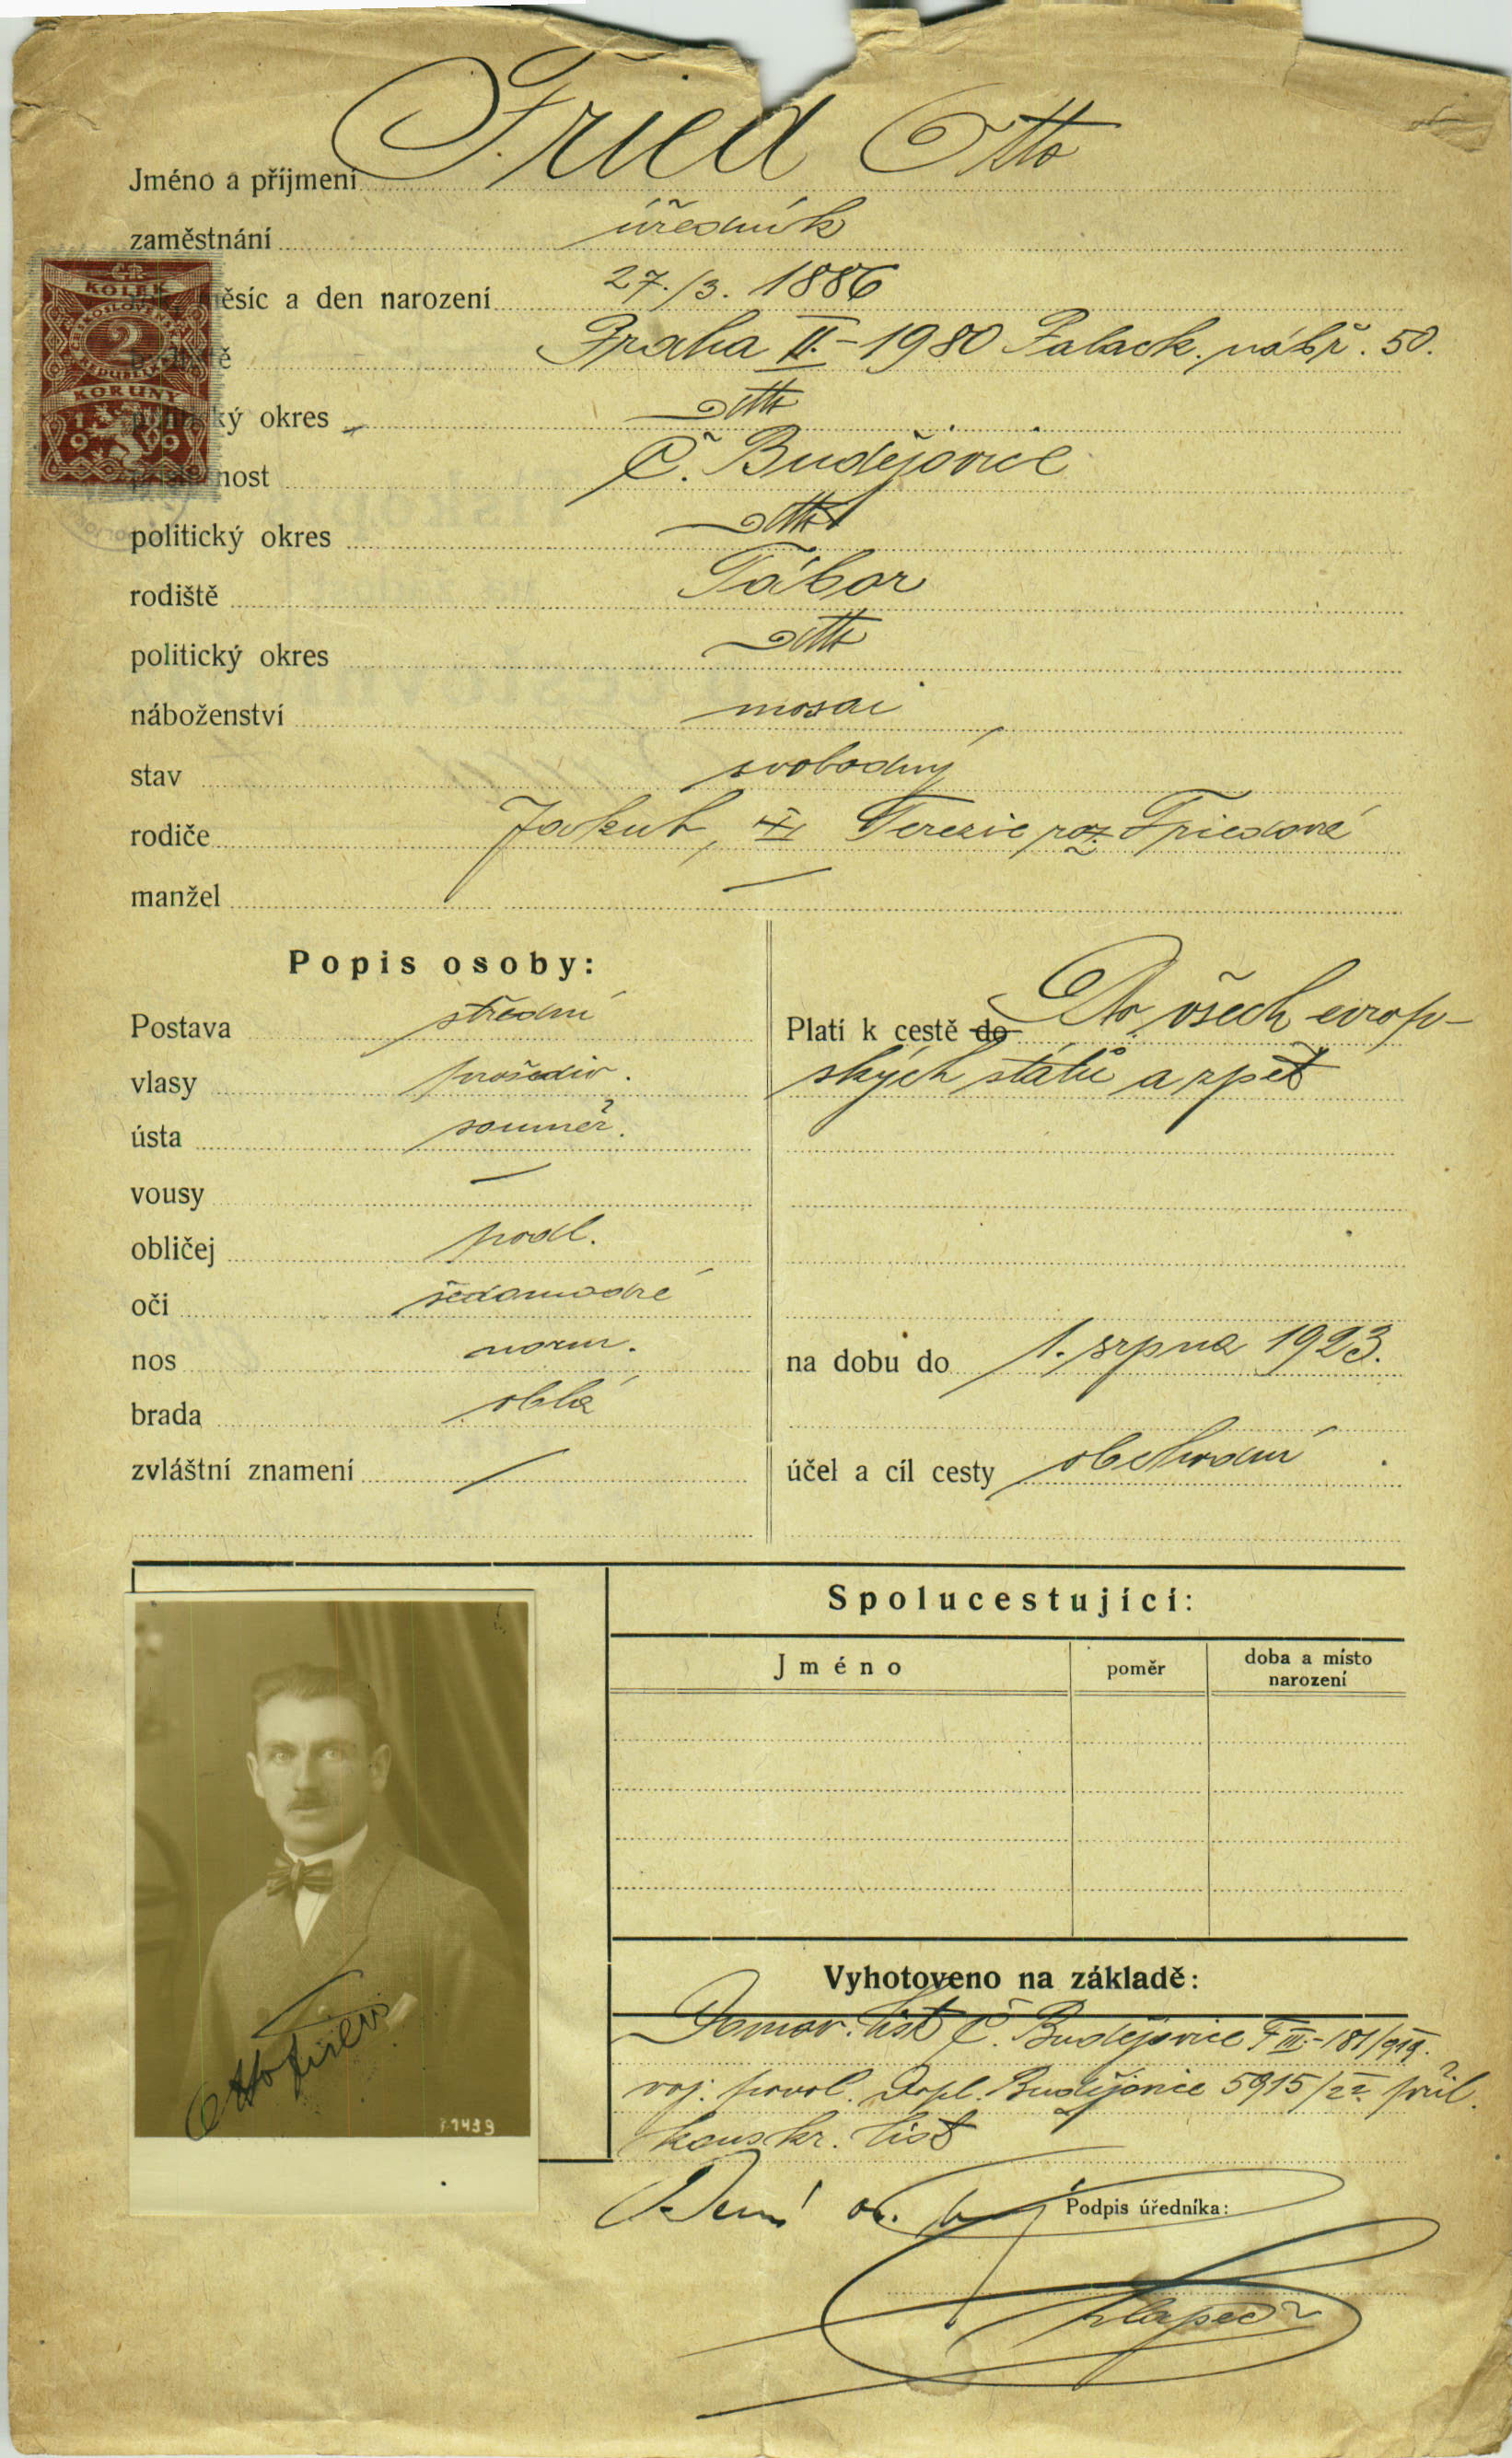 Jméno a příjmení Fried Otto
zaměstnání úředník
měsíc a den narození 27./3. 1886
Praha II.-1980 Palack. nábř. 50.
KOLEK
2
KORUNY
1919
okres detto
Č. Budějovice
politický okres detto
rodiště Tábor
politický okres detto
náboženství mosai
stav svobodný
rodiče Jakub, Terezie roz. Friedová
manžel —
Popis osoby:
Postava střední
vlasy prošediv.
ústa souměř.
vousy —
obličej podl.
oči šedomodré
nos norm.
brada oblá
zvláštní znamení —
Platí k cestě do Do všech evrop-
ských států a zpět
na dobu do 1. srpna 1923.
účel a cíl cesty obchodní
Spolucestující:
Jméno poměr doba a místo narození
Vyhotoveno na základě:
Domov. list Č. Budějovice F III.-181/919.
voj. povol. Dopl. Budějovice 5915/22 příl.
konskr. list
Otto Fried
Podpis úředníka: